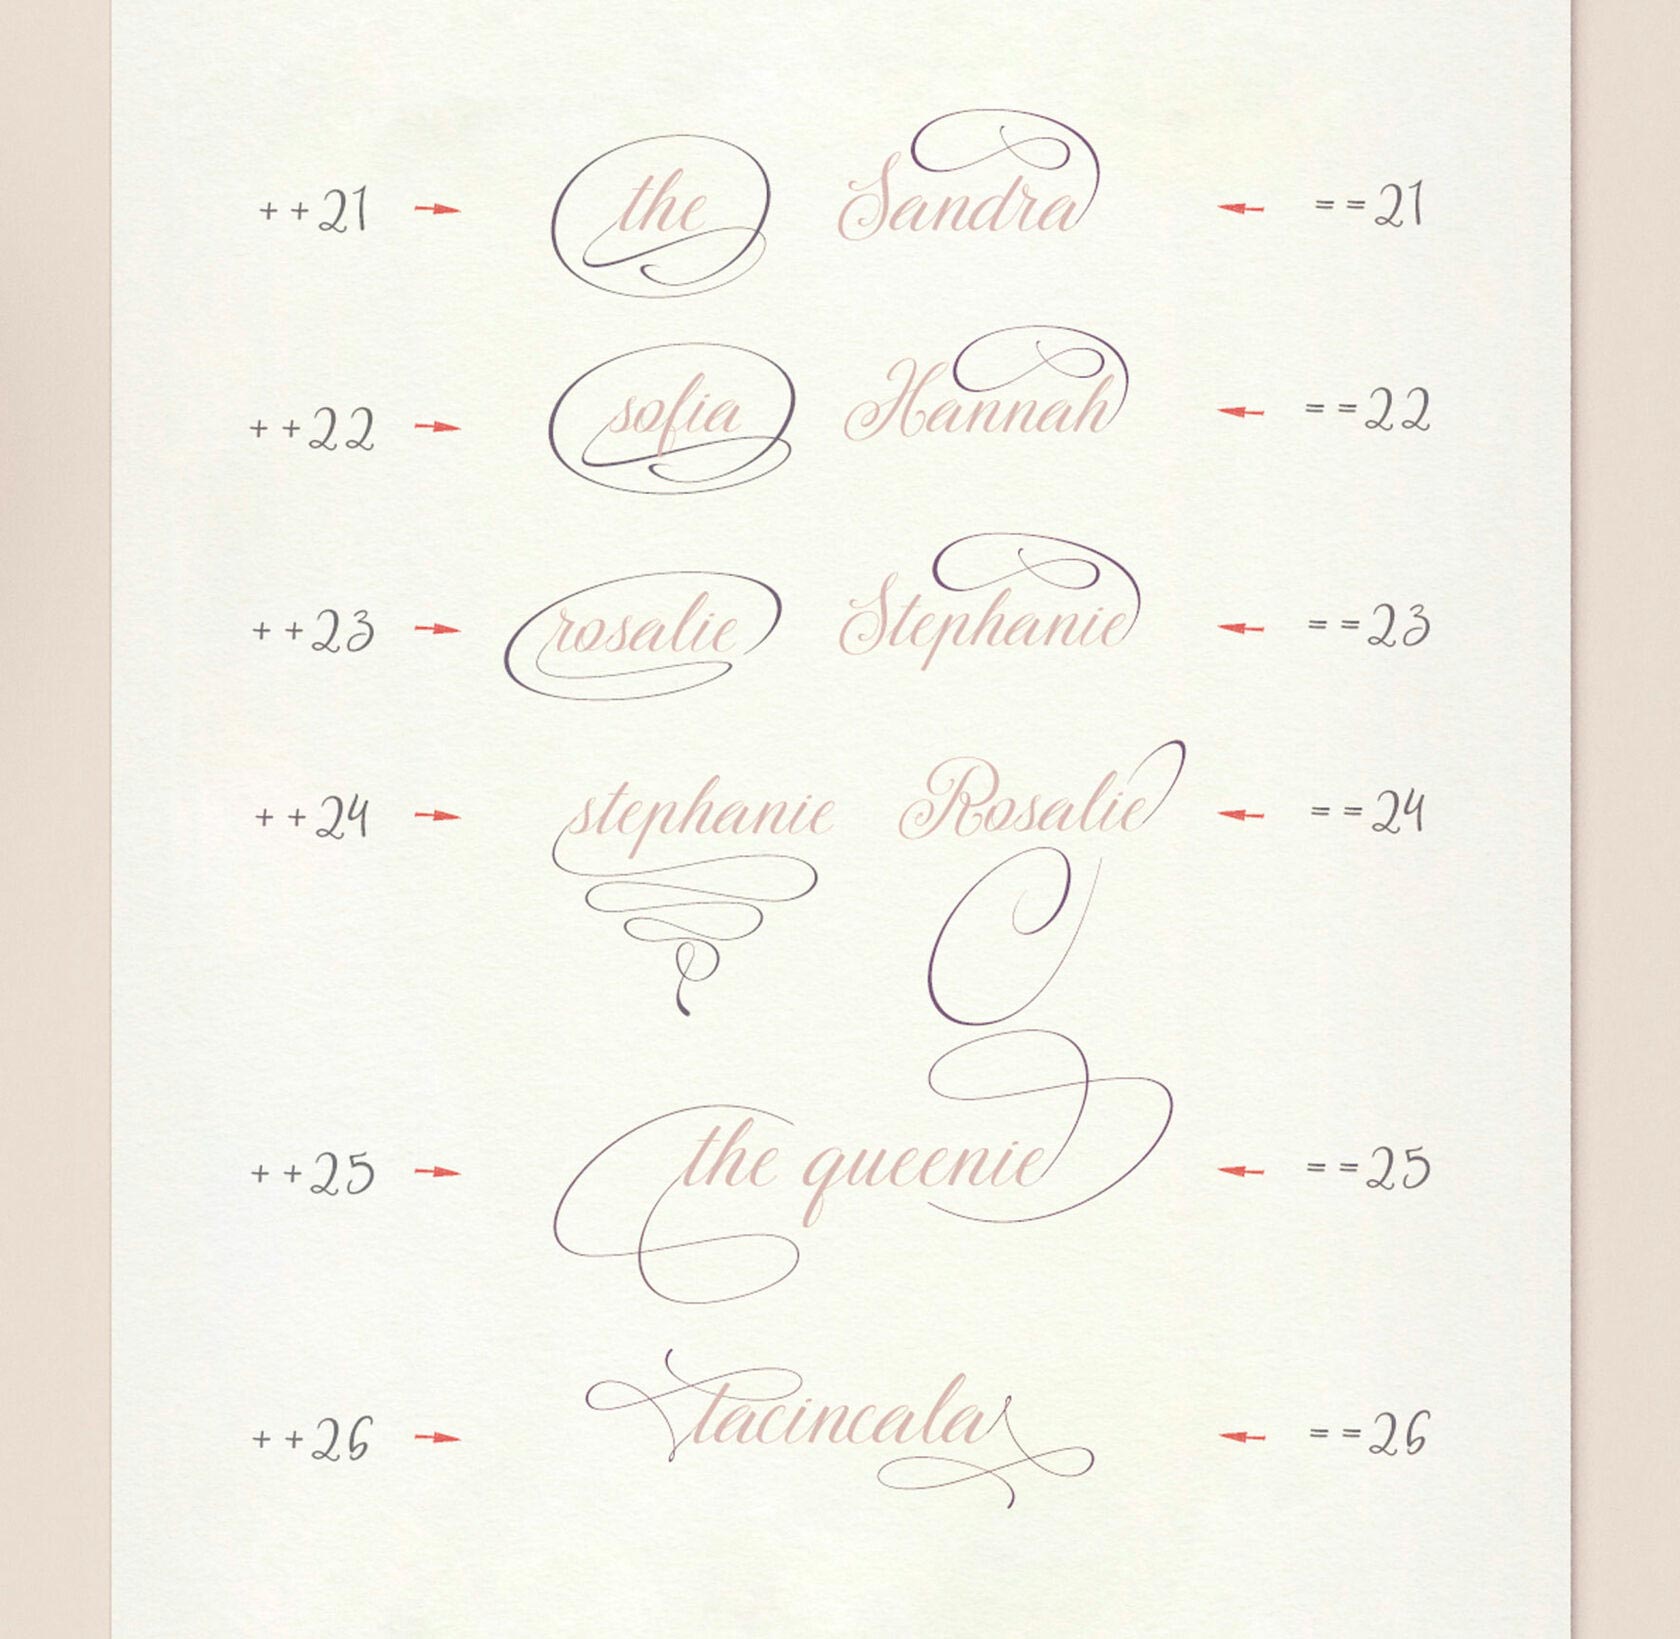 ++21 the Sandra ==21
++22 sofia Hannah ==22
++23 rosalie Stephanie ==23
++24 stephanie Rosalie ==24
++25 the queenie ==25
++26 tacincala ==26